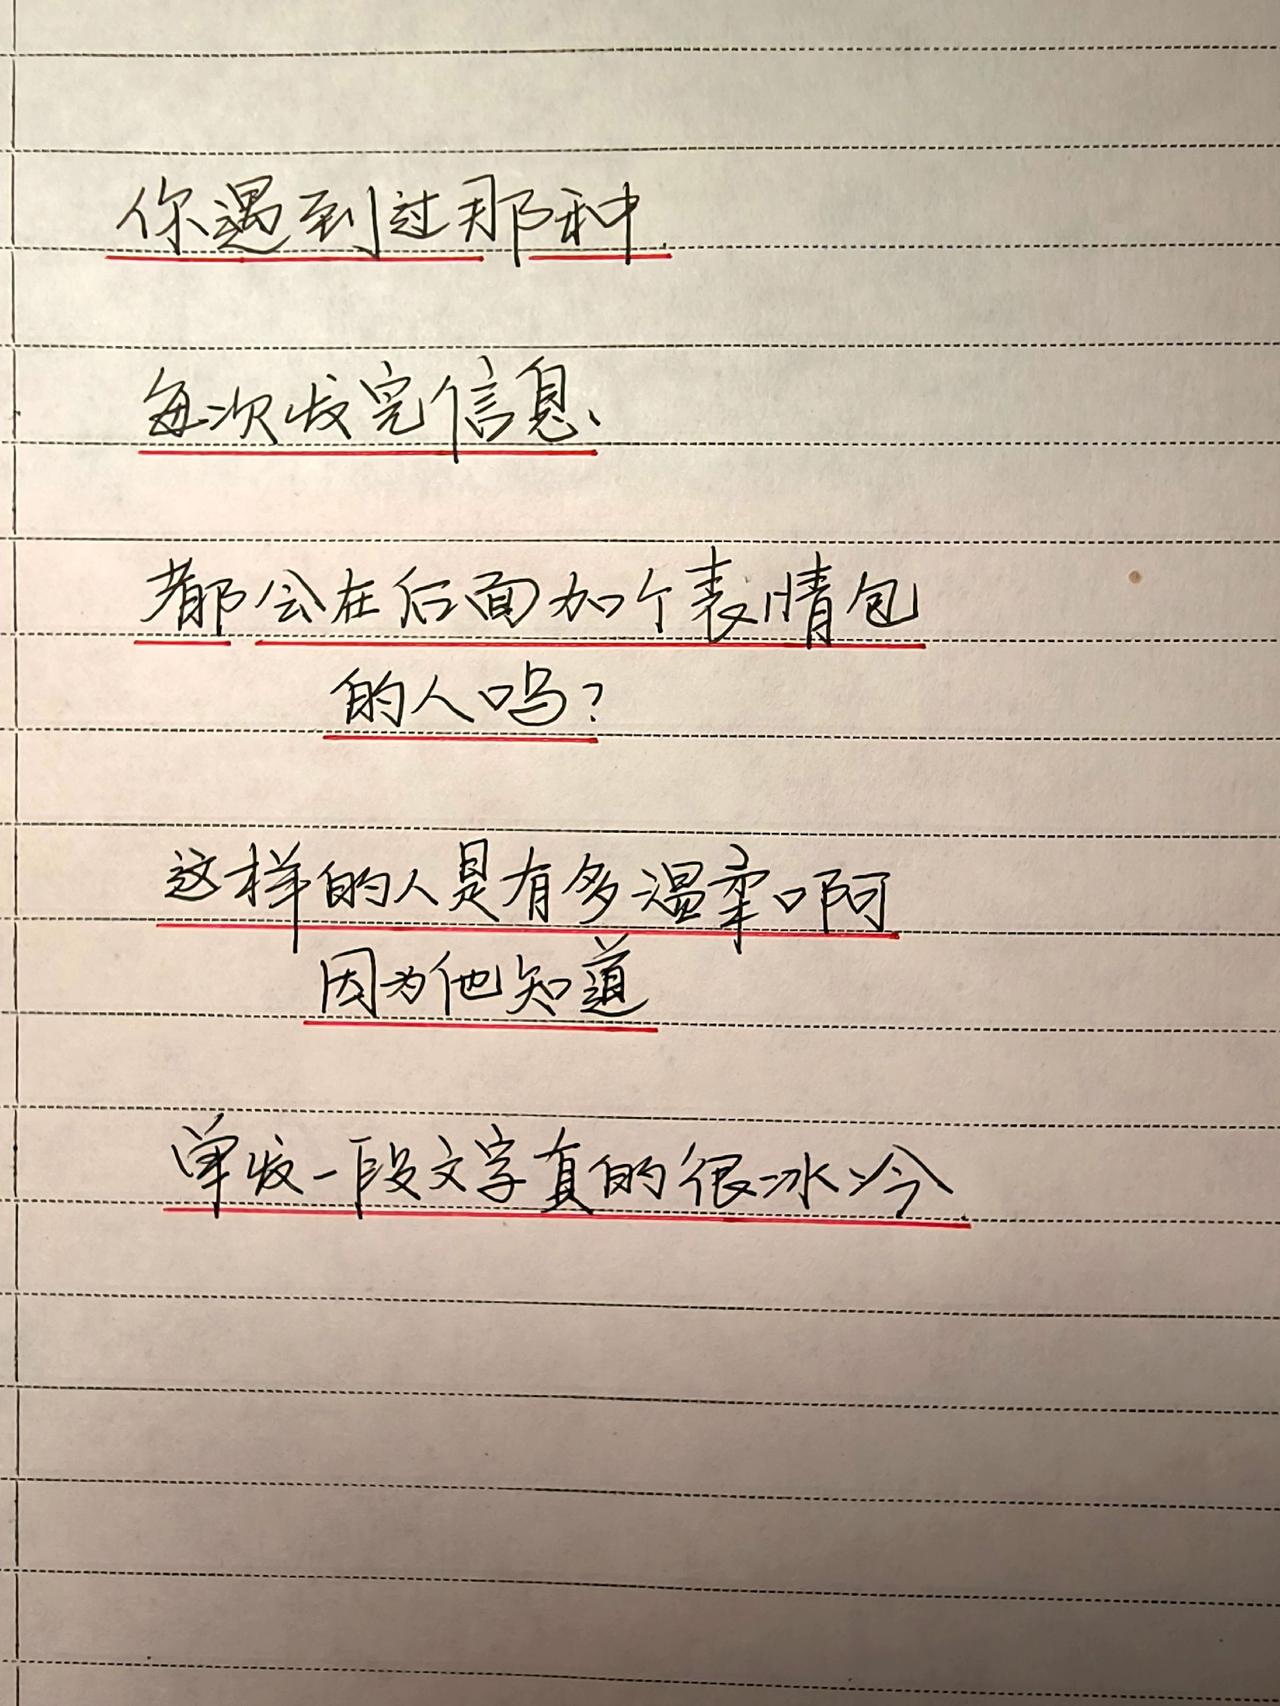 你遇到过那种
每次发完信息、
都会在后面加个表情包
的人吗?
这样的人是有多温柔啊
因为他知道
单发一段文字真的很冰冷